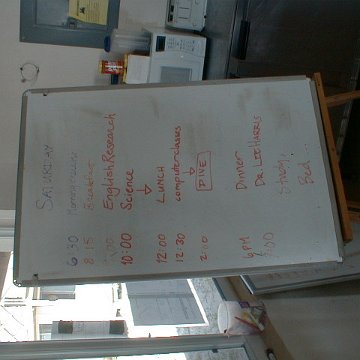 SATURDAY
6:30
8:15 Breakfast
English Research
10:00 Science
↓
12:00 LUNCH
12:30 computer classes
↓
2:10 DIVE
6PM Dinner
7:00 DR. LEE HARRIS
Study
Bed...